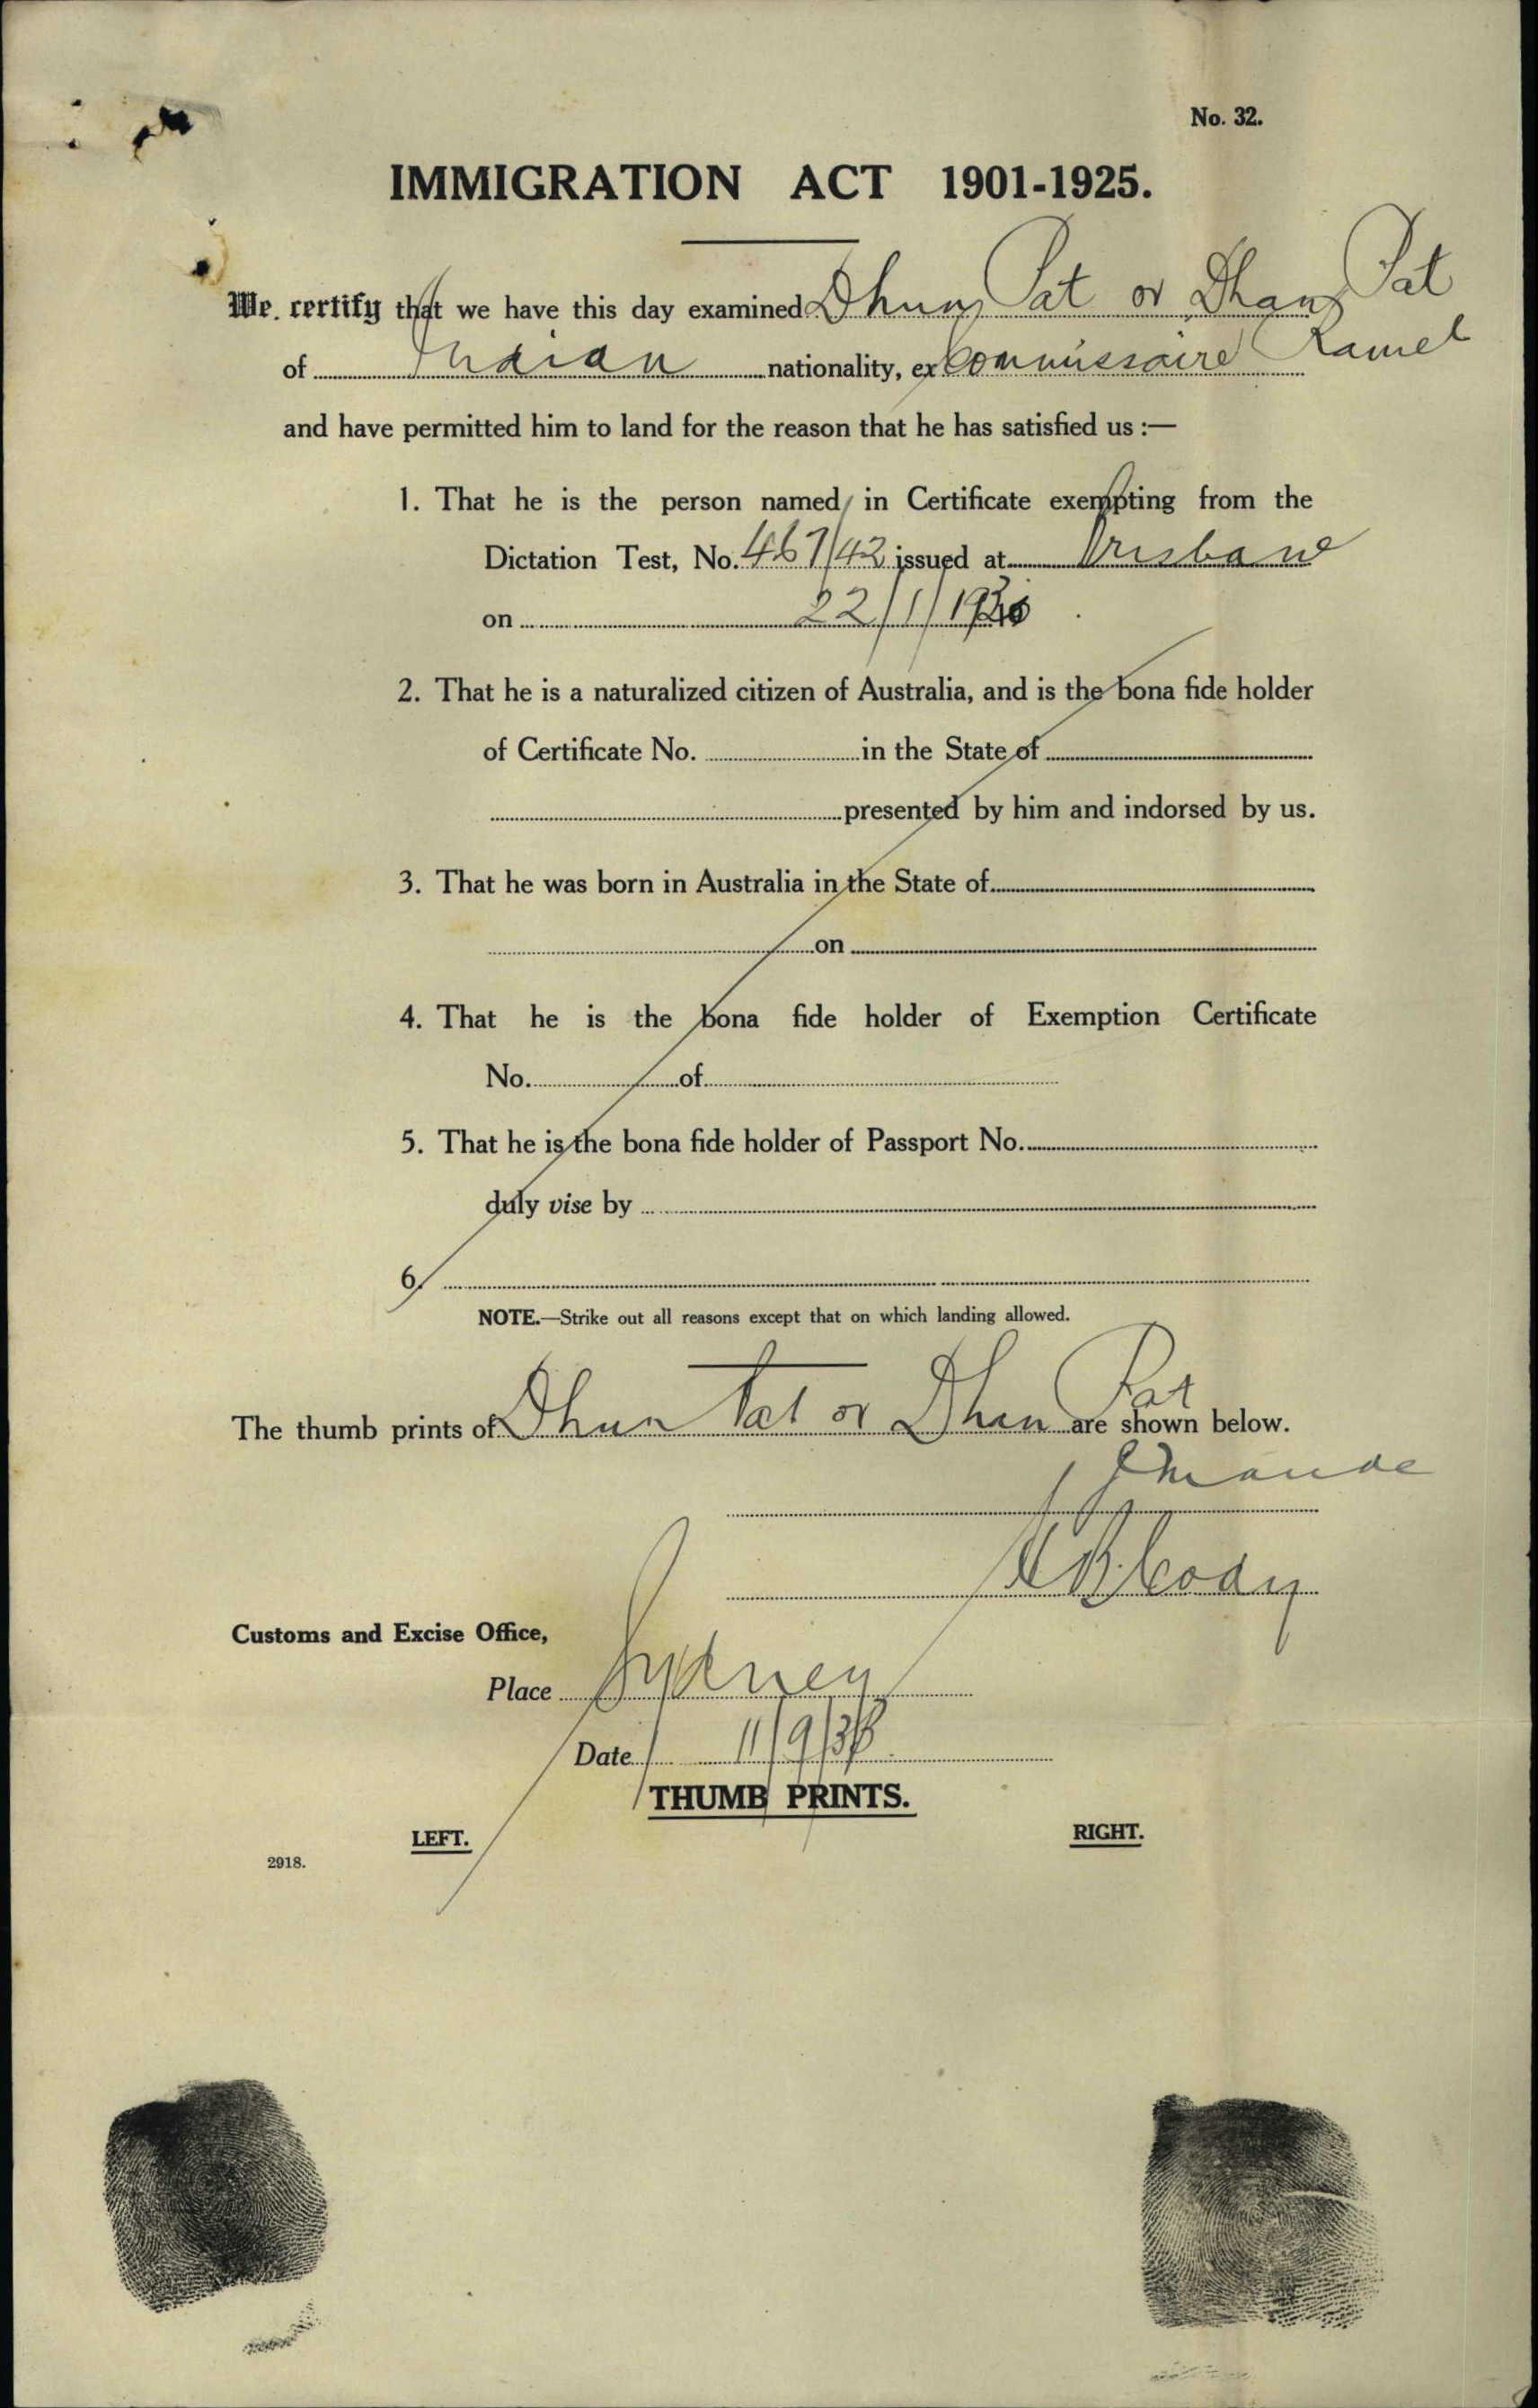 No. 32.
IMMIGRATION ACT 1901-1925.
We certify that we have this day examined Dhun Pat or Dhan Pat
of Indian nationality, ex Commissaire Ramel
and have permitted him to land for the reason that he has satisfied us :—
1. That he is the person named in Certificate exempting from the
Dictation Test, No. 467/42 issued at Brisbane
on 22/1/
2. That he is a naturalized citizen of Australia, and is the bona fide holder
of Certificate No. in the State of
presented by him and indorsed by us.
3. That he was born in Australia in the State of
on
4. That he is the bona fide holder of Exemption Certificate
No. of
5. That he is the bona fide holder of Passport No.
duly vise by
6.
NOTE.—Strike out all reasons except that on which landing allowed.
The thumb prints of Dhun Pat or Dhan Pat are shown below.
Cody
Customs and Excise Office,
Place Sydney
Date 11/9/38
THUMB PRINTS.
LEFT. RIGHT.
2918.